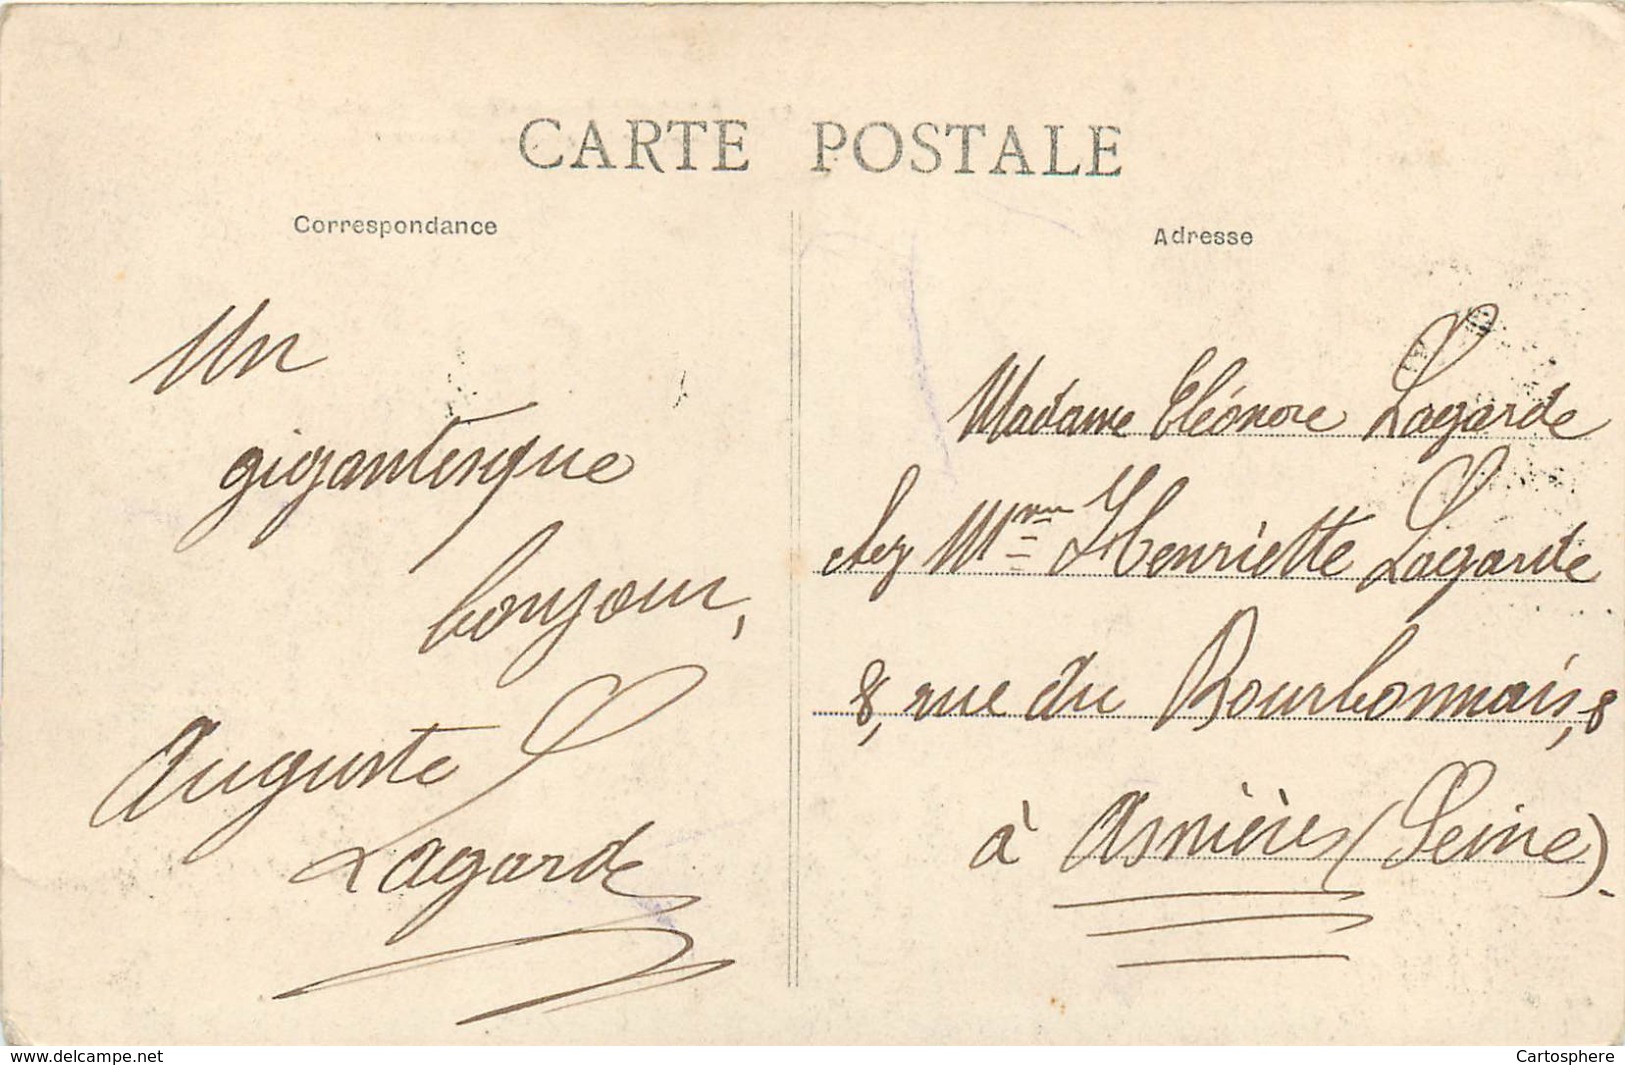 CARTE POSTALE
Correspondance
Adresse
Un
gigantesque
bonjour,
Auguste
Lagarde
Madame Eléonore Lagarde
chez Mme Henriette Lagarde
8, rue du Bourbonnais, 8
à Asnières (Seine).
www.delcampe.net
Cartosphere